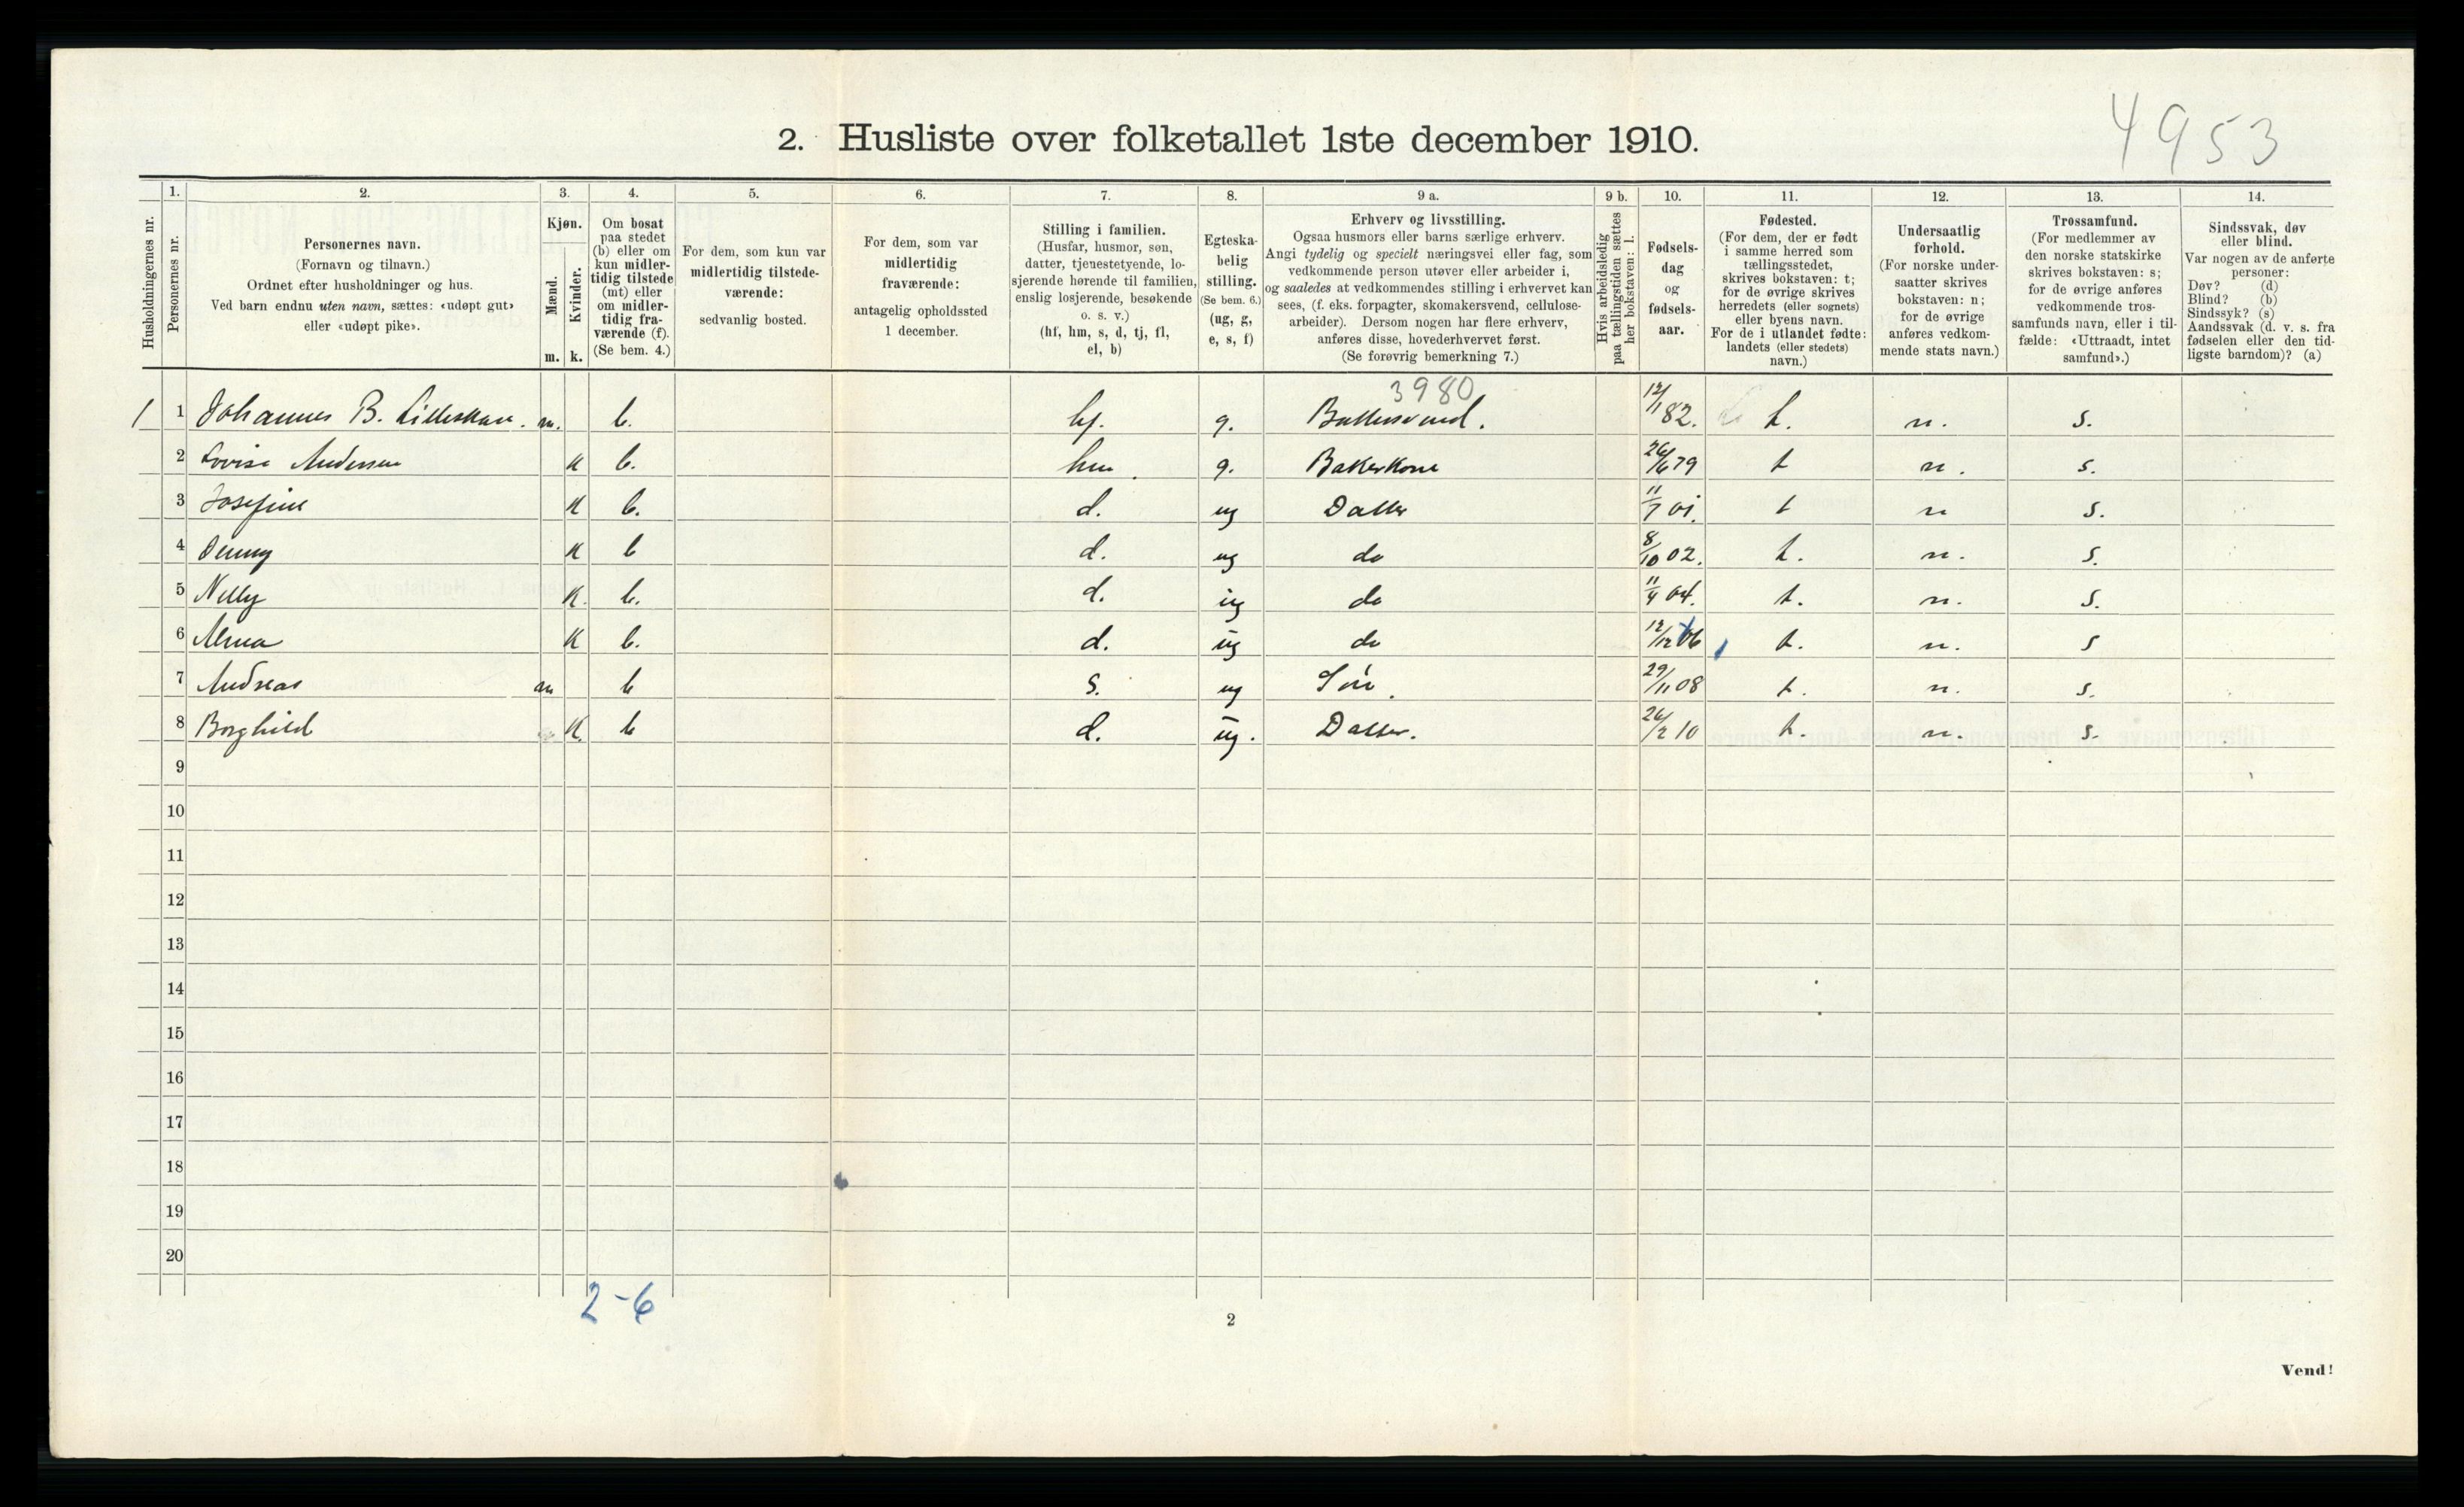 4953
2. Husliste over folketallet 1ste december 1910.
Husholdningernes nr.
1.
Personernes nr.
2.
Personernes navn.
(Fornavn og tilnavn.)
Ordnet efter husholdninger og hus.
Ved barn endnu uten navn, sættes: «udøpt gut»
eller «udøpt pike».
3.
Kjøn.
Mænd.
Kvinder.
m. k.
4.
Om bosat
paa stedet
(b) eller om
kun midler-
tidig tilstede
(mt) eller
om midler-
tidig fra-
værende (f).
(Se bem. 4.)
5.
For dem, som kun var
midlertidig tilstede-
værende:
sedvanlig bosted.
6.
For dem, som var
midlertidig
fraværende:
antagelig opholdssted
1 december.
7.
Stilling i familien.
(Husfar, husmor, søn,
datter, tjenestetyende, lo-
sjerende hørende til familien,
enslig losjerende, besøkende
o. s. v.)
(hf, hm, s, d, tj, fl,
el, b)
8.
Egteska-
belig
stilling.
(Se bem. 6.)
(ug, g,
e, s, f)
9 a.
Erhverv og livsstilling.
Ogsaa husmors eller barns særlige erhverv.
Angi tydelig og specielt næringsvei eller fag, som
vedkommende person utøver eller arbeider i,
og saaledes at vedkommendes stilling i erhvervet kan
sees, (f. eks. forpagter, skomakersvend, cellulose-
arbeider). Dersom nogen har flere erhverv,
anføres disse, hovederhvervet først.
(Se forøvrig bemerkning 7.)
9 b.
Hvis arbeidsledig
paa tællingstiden sættes
her bokstaven: l.
10.
Fødsels-
dag
og
fødsels-
aar.
11.
Fødested.
(For dem, der er født
i samme herred som
tællingsstedet,
skrives bokstaven: t;
for de øvrige skrives
herredets (eller sognets)
eller byens navn.
For de i utlandet fødte:
landets (eller stedets)
navn.)
12.
Undersaatlig
forhold.
(For norske under-
saatter skrives
bokstaven: n;
for de øvrige
anføres vedkom-
mende stats navn.)
13.
Trossamfund.
(For medlemmer av
den norske statskirke
skrives bokstaven: s;
for de øvrige anføres
vedkommende tros-
samfunds navn, eller i til-
fælde: «Uttraadt, intet
samfund».)
14.
Sindssvak, døv
eller blind.
Var nogen av de anførte
personer:
Døv? (d)
Blind? (b)
Sindssyk? (s)
Aandssvak (d. v. s. fra
fødselen eller den tid-
ligste barndom)? (a)
3980
1 1 Johannes B. m. b. hf. g. 12/1 82. t. n. s.
2 Lovise Andersen k b. hm g. Bakerkone 26/6 79 t n. s.
3 Josefine k b. d. ug Datter 11/7 01. t n s.
4 Jenny k b d. ug do 8/10 02. t. n. s.
5 Nelly k. b. d. ug do 11/4 04. t. n. s.
6 Alma k b. d. ug do 12/12 06 t. n. s
7 Andreas m b s. ug Sön. 29/11 08 t. n. s.
8 Borghild k. b d. ug. Datter. 26/2 10 t. n. s.
9
10
11
12
13
14
15
16
17
18
19
20
2-6
2
Vend!